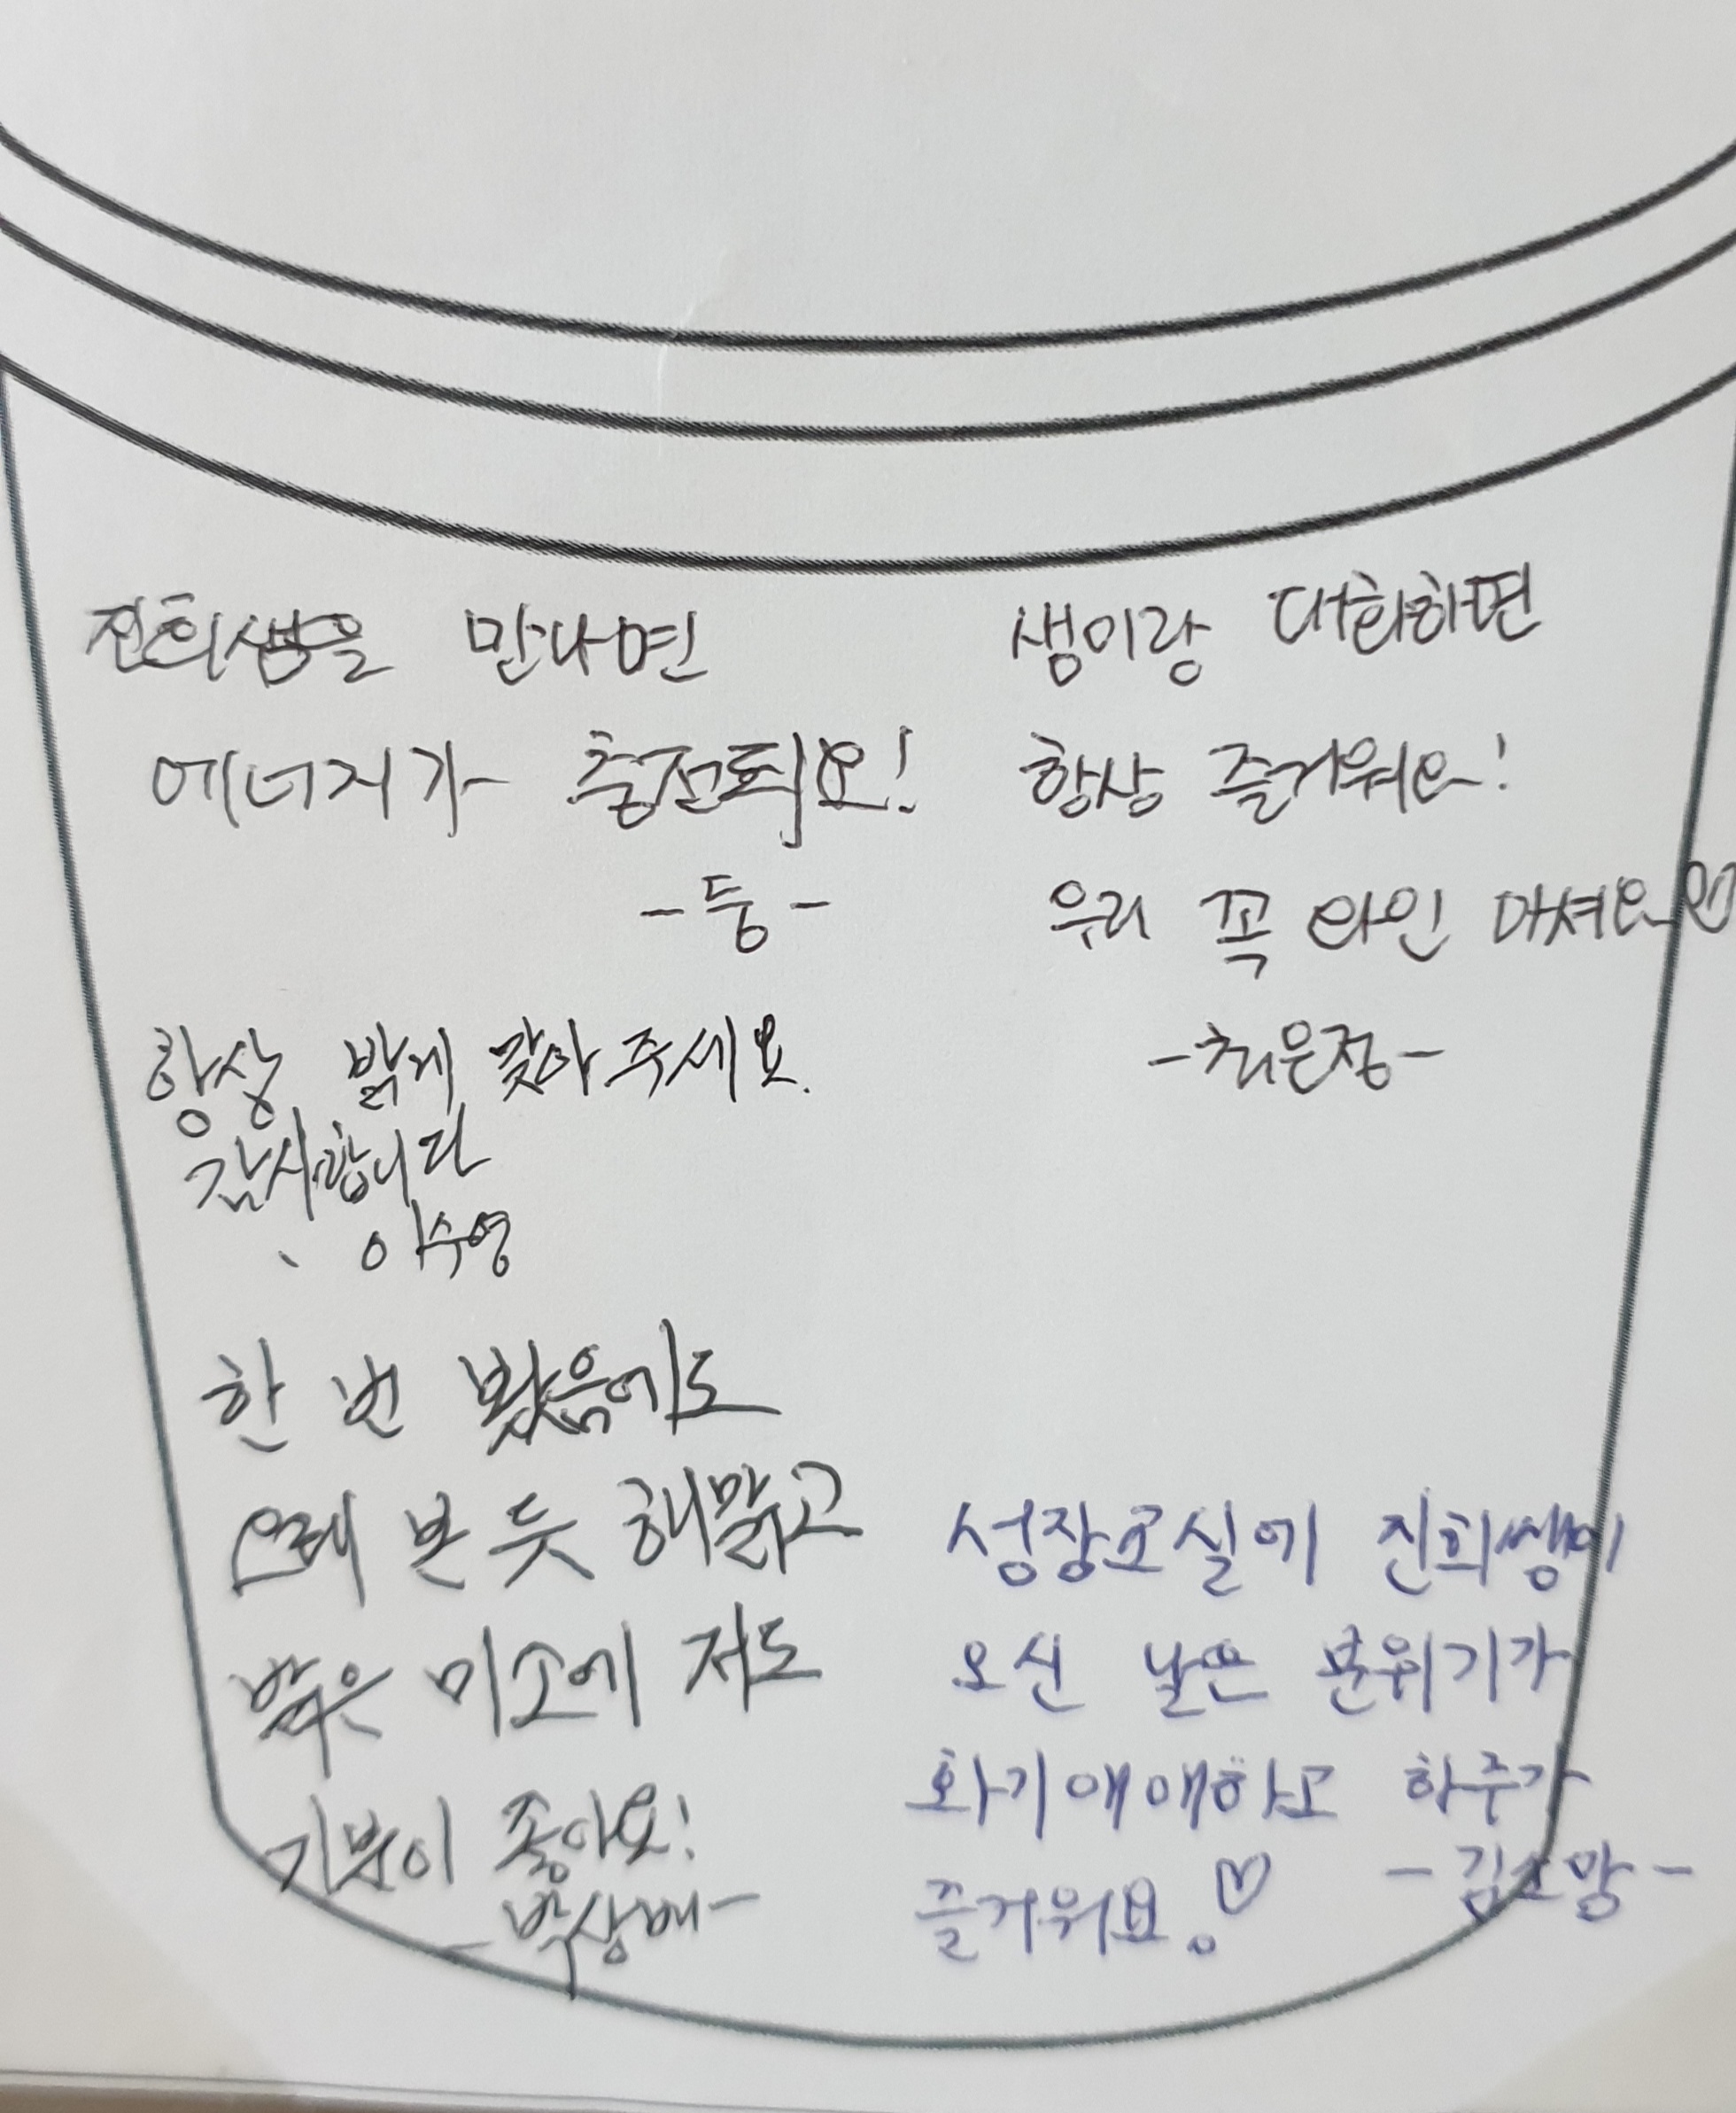 진희쌤을 만나면
에너지가 충전되요!
-둥-
생이랑 대화하면
항상 즐거워요!
우리 꼭 와인 마셔요♡
-최은정-
항상 밝게 맞아주세요.
감사합니다
이수영
한 번 봤음에도
오래 본 듯 해맑고
밝은 미소에 저도
기분이 좋아요!
-박상배-
성장교실에 진희쌤이
오신 날은 분위기가
화기애애하고 하루가
즐거워요!♡
-김소망-